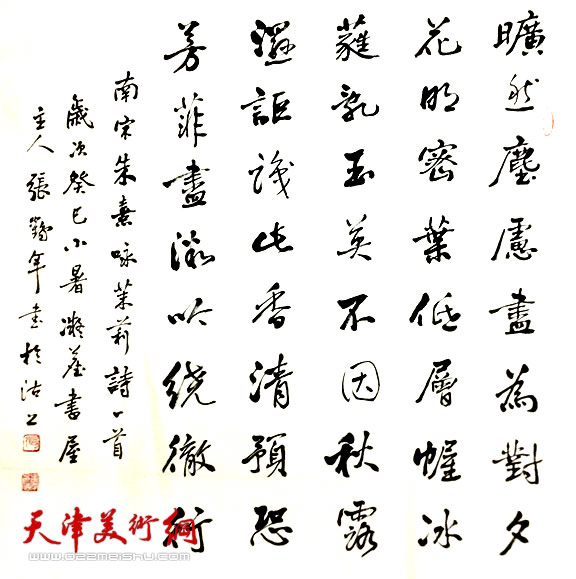 曠然塵慮盡為對夕
花明密葉低層幄冰
蕤亂玉英不因秋露
濕詎識此香清預恐
芳菲盡微吟繞徹
南宋朱熹咏茉莉詩一首
歲次癸巳小暑凝書屋
主人張鶴年書於沽上
天津美術網
www.022meishu.com